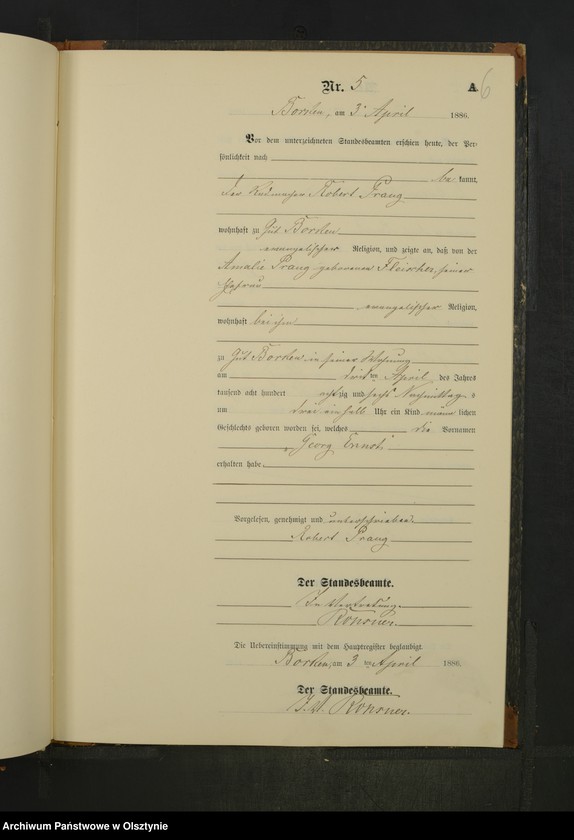 Nr. 5.
A
6
Borcken, am 3' April 1886.
Vor dem unterzeichneten Standesbeamten erschien heute, der Per-
sönlichkeit nach
be kannt,
der Robert Prang
wohnhaft zu Gut Borcken
evangelischer Religion, und zeigte an, daß von der
Amalie Prang geborenen Fleischer, seiner
Ehefrau
evangelischer Religion,
wohnhaft bei ihm
zu Gut Borcken in seiner Wohnung
am dritten April des Jahres
tausend acht hundert achtzig und sechs Nachmittags
um drei ein halb Uhr ein Kind männ lichen
Geschlechts geboren worden sei, welches die Vornamen
Georg Ernst
erhalten habe.
Vorgelesen, genehmigt und unterschrieben
Robert Prang
Der Standesbeamte.
In Vertretung.
Die Uebereinstimmung mit dem Hauptregister beglaubigt.
Borcken, am 3 ten April 1886.
Der Standesbeamte.
I. V.
Archiwum Państwowe w Olsztynie